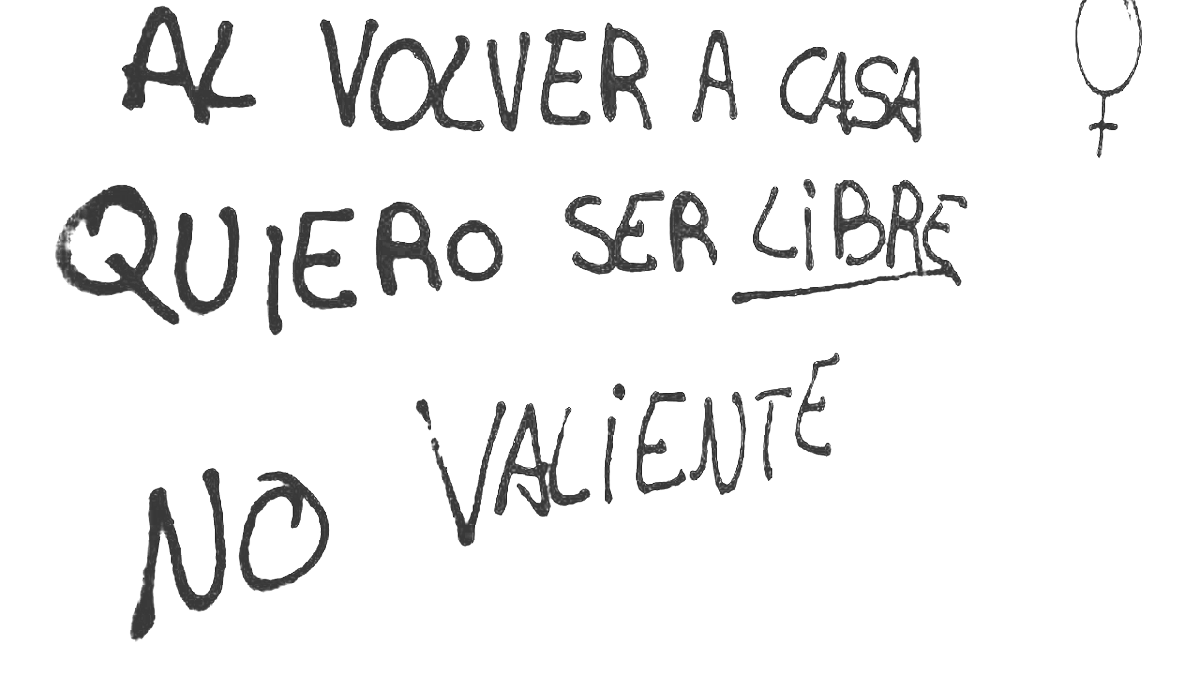 AL VOLVER A CASA
QUIERO SER LIBRE
NO VALIENTE